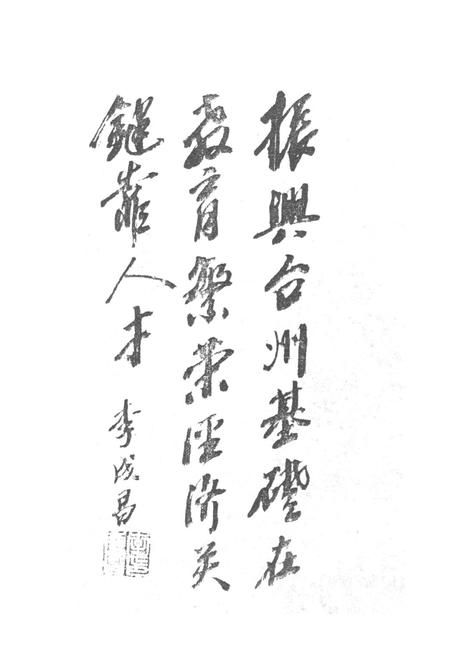 振興台州基礎在
教育繁荣经济关
键靠人才
李成昌